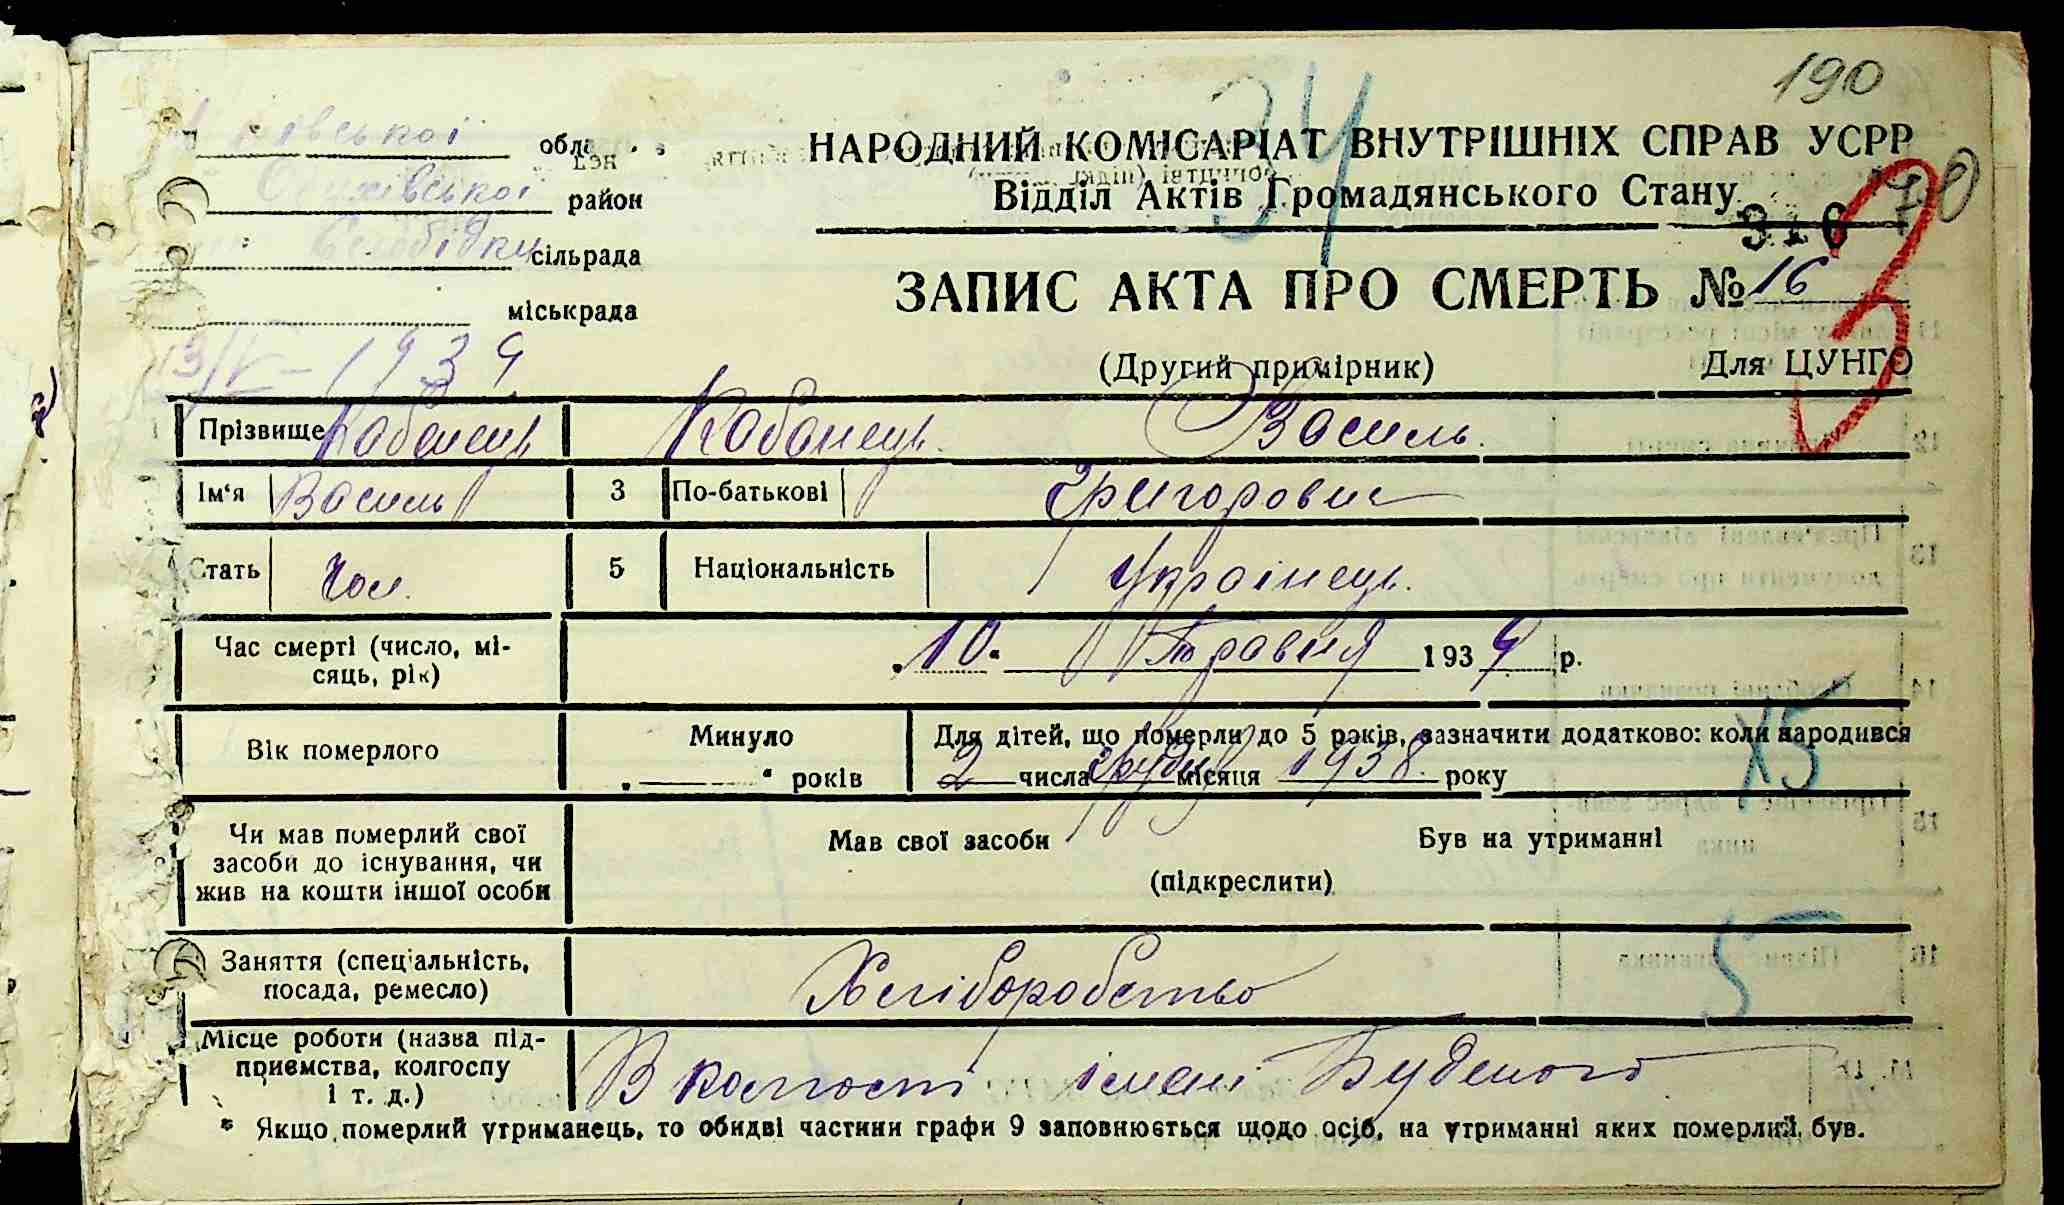 190
34
НАРОДНИЙ КОМІСАРІАТ ВНУТРІШНІХ СПРАВ УСРР
Відділ Актів Громадянського Стану
район
сільрада
міськрада
316
70
3
ЗАПИС АКТА ПРО СМЕРТЬ № 16
(Другий примірник) Для ЦУНГО
1939
Прізвище Кабанець Кабанець Василь
Ім'я Василь 3 По-батькові Григорович
Стать Чол. 5 Національність Українець.
Час смерті (число, мі-
сяць, рік)
„10“ Травня 1939 р.
Вік померлого
Минуло
„—“ років
Для дітей, що померли до 5 років, зазначити додатково: коли народився
2 числа Грудня місяця 1938 року
X5
Чи мав померлий свої
засоби до існування, чи
жив на кошти іншої особи
Мав свої засоби Був на утриманні
(підкреслити)
Заняття (спеціальність,
посада, ремесло)
Хліборобство
5
Місце роботи (назва під-
приємства, колгоспу
і т. д.)
В колгоспі імені Буденого
* Якщо померлий утриманець, то обидві частини графи 9 заповнюється щодо осіб, на утриманні яких померлий був.